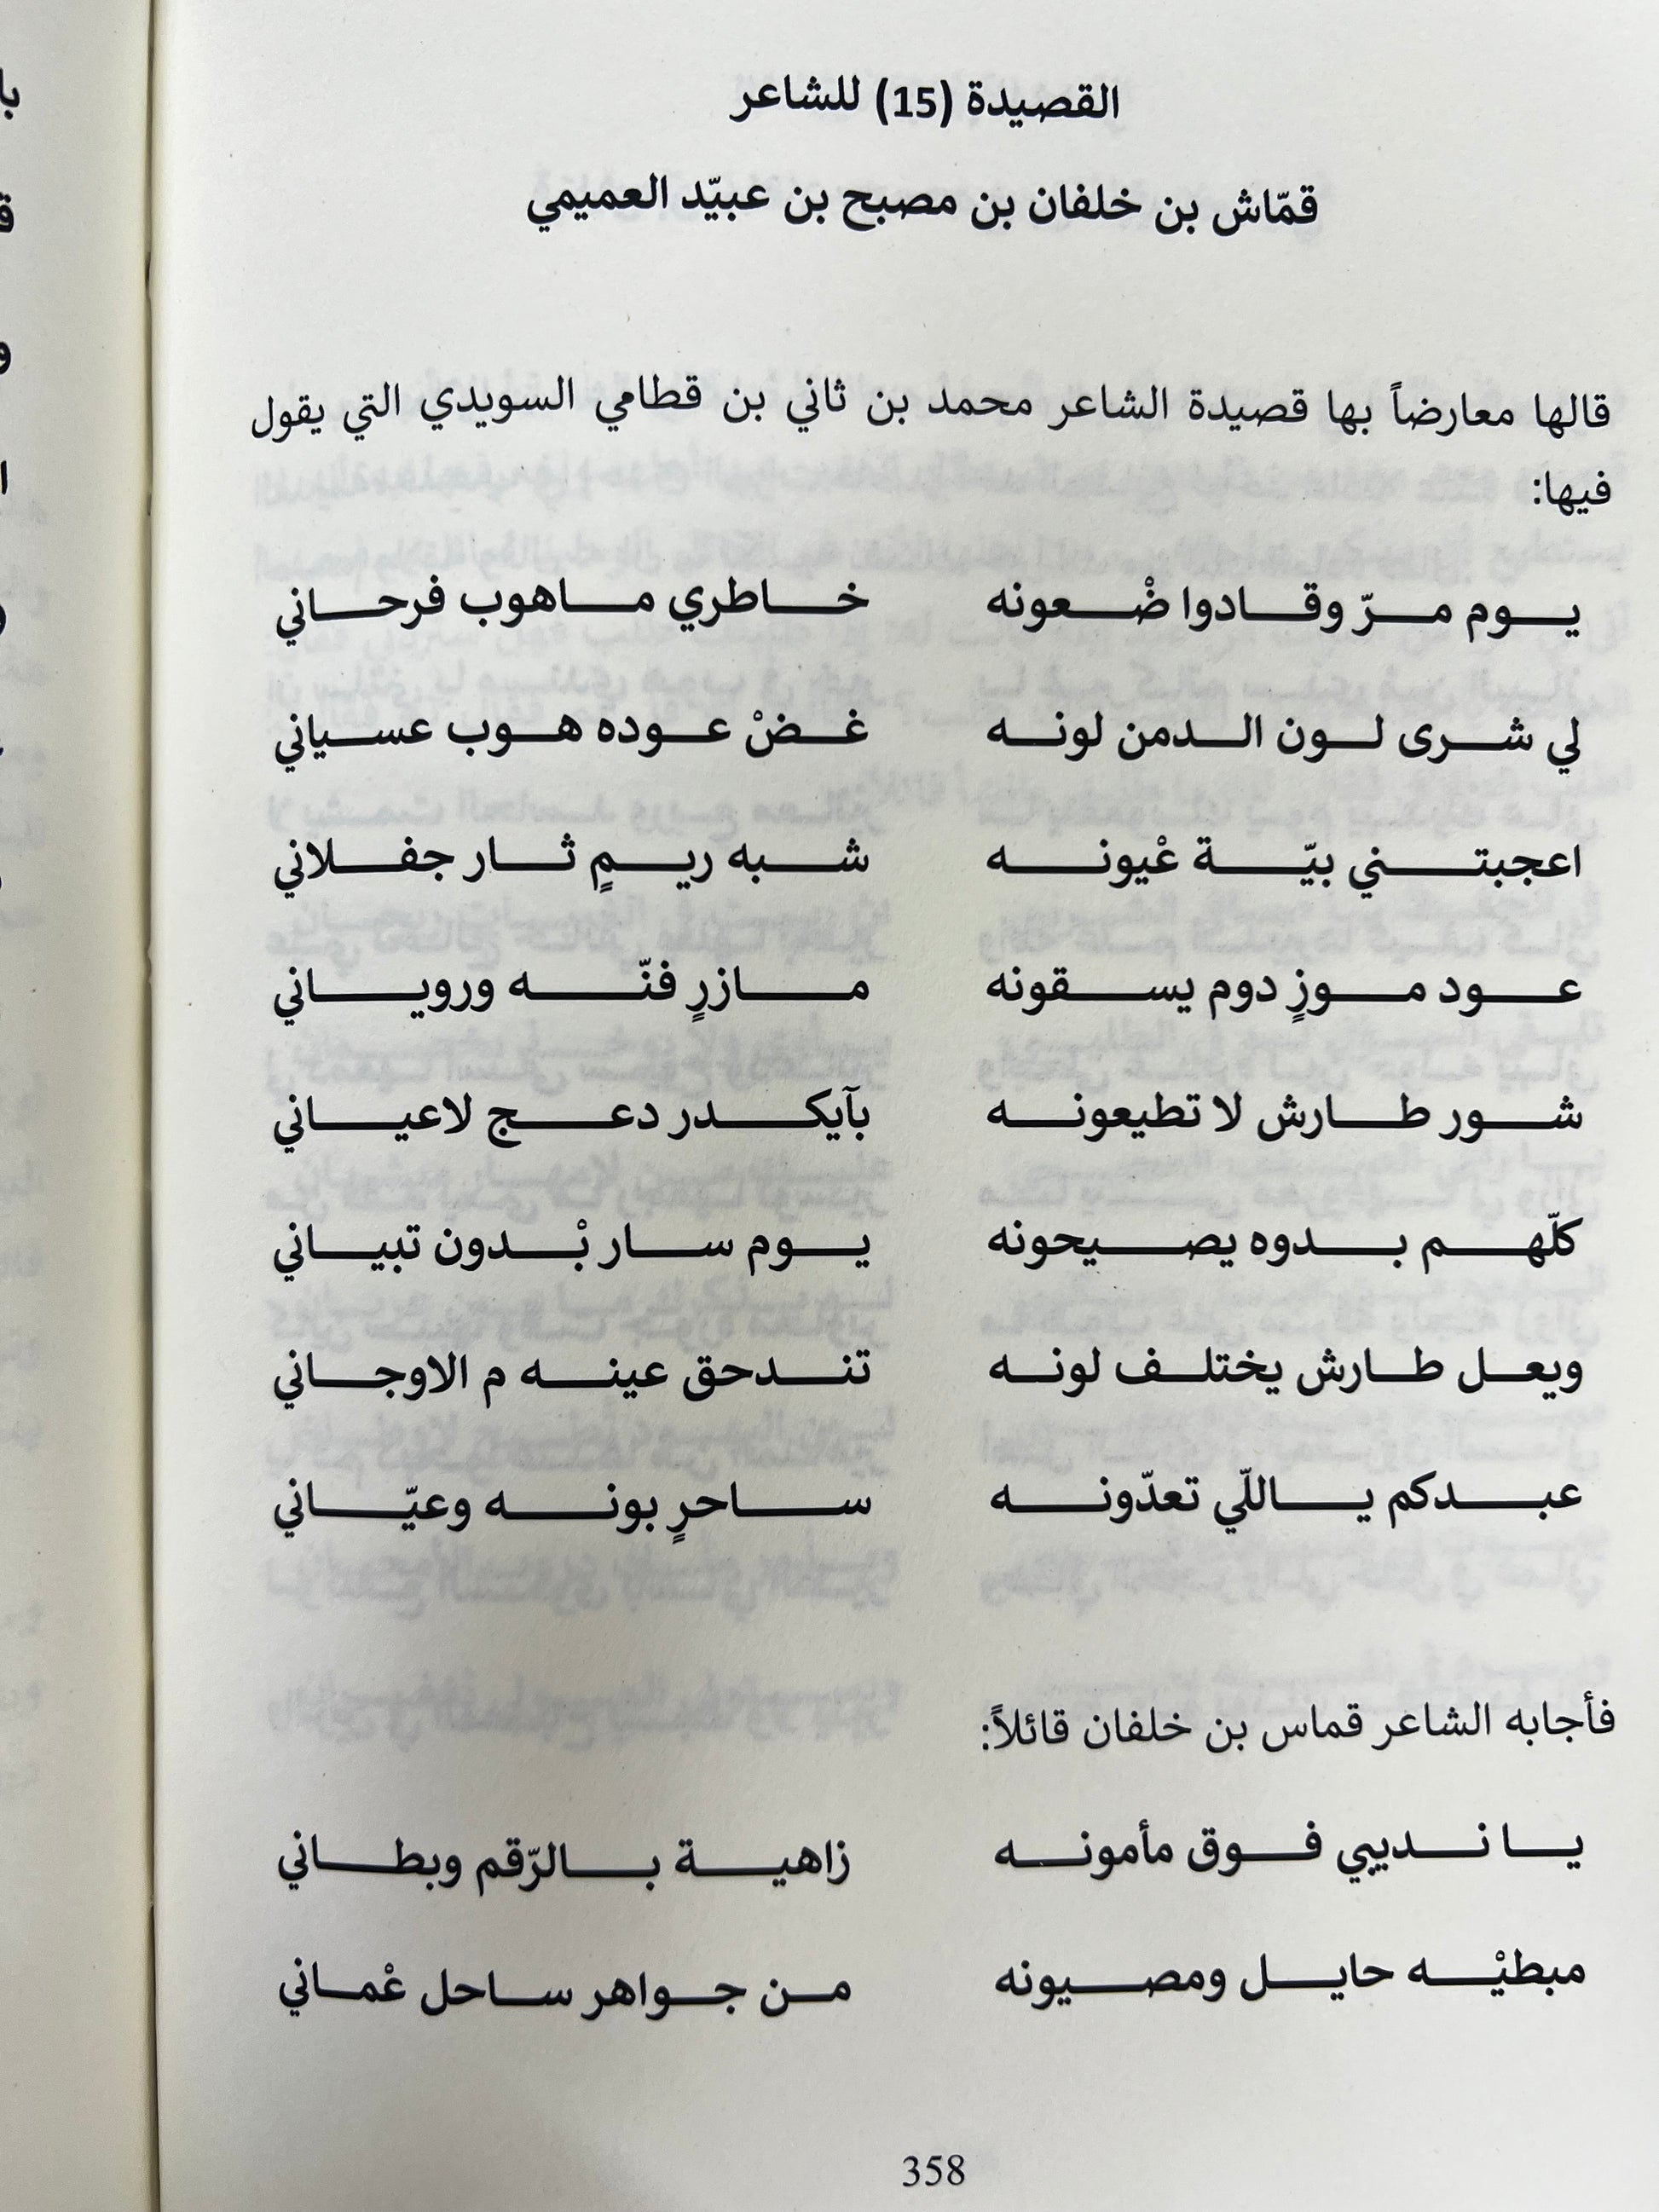 القصيدة (15) للشاعر
قمّاش بن خلفان بن مصبح بن عبيّد العميمي
قالها معارضاً بها قصيدة الشاعر محمد بن ثاني بن قطامي السويدي التي يقول
فيها:
يوم مرّ وقادوا ضْعونه خاطري ماهوب فرحاني
لي شرى لون الدمن لونه غضْ عوده هوب عسياني
اعجبتني بيّة عْيونه شبه ريمٍ ثار جفلاني
عود موزٍ دوم يسقونه مازرٍ فنّه ورویاني
شور طارش لا تطيعونه بآيكدر دعج لاعياني
كلّهم بدوه يصيحونه يوم سار بْدون تبياني
ويعل طارش يختلف لونه تندحق عينه م الاوجاني
عبدكم ياللّي تعدّونه ساحرٍ بونه وعيّاني
فأجابه الشاعر قماس بن خلفان قائلاً:
يا نديبي فوق مأمونه زاهية بالرّقم وبطاني
مبطيْه حايل ومصيونه من جواهر ساحل عْماني
358